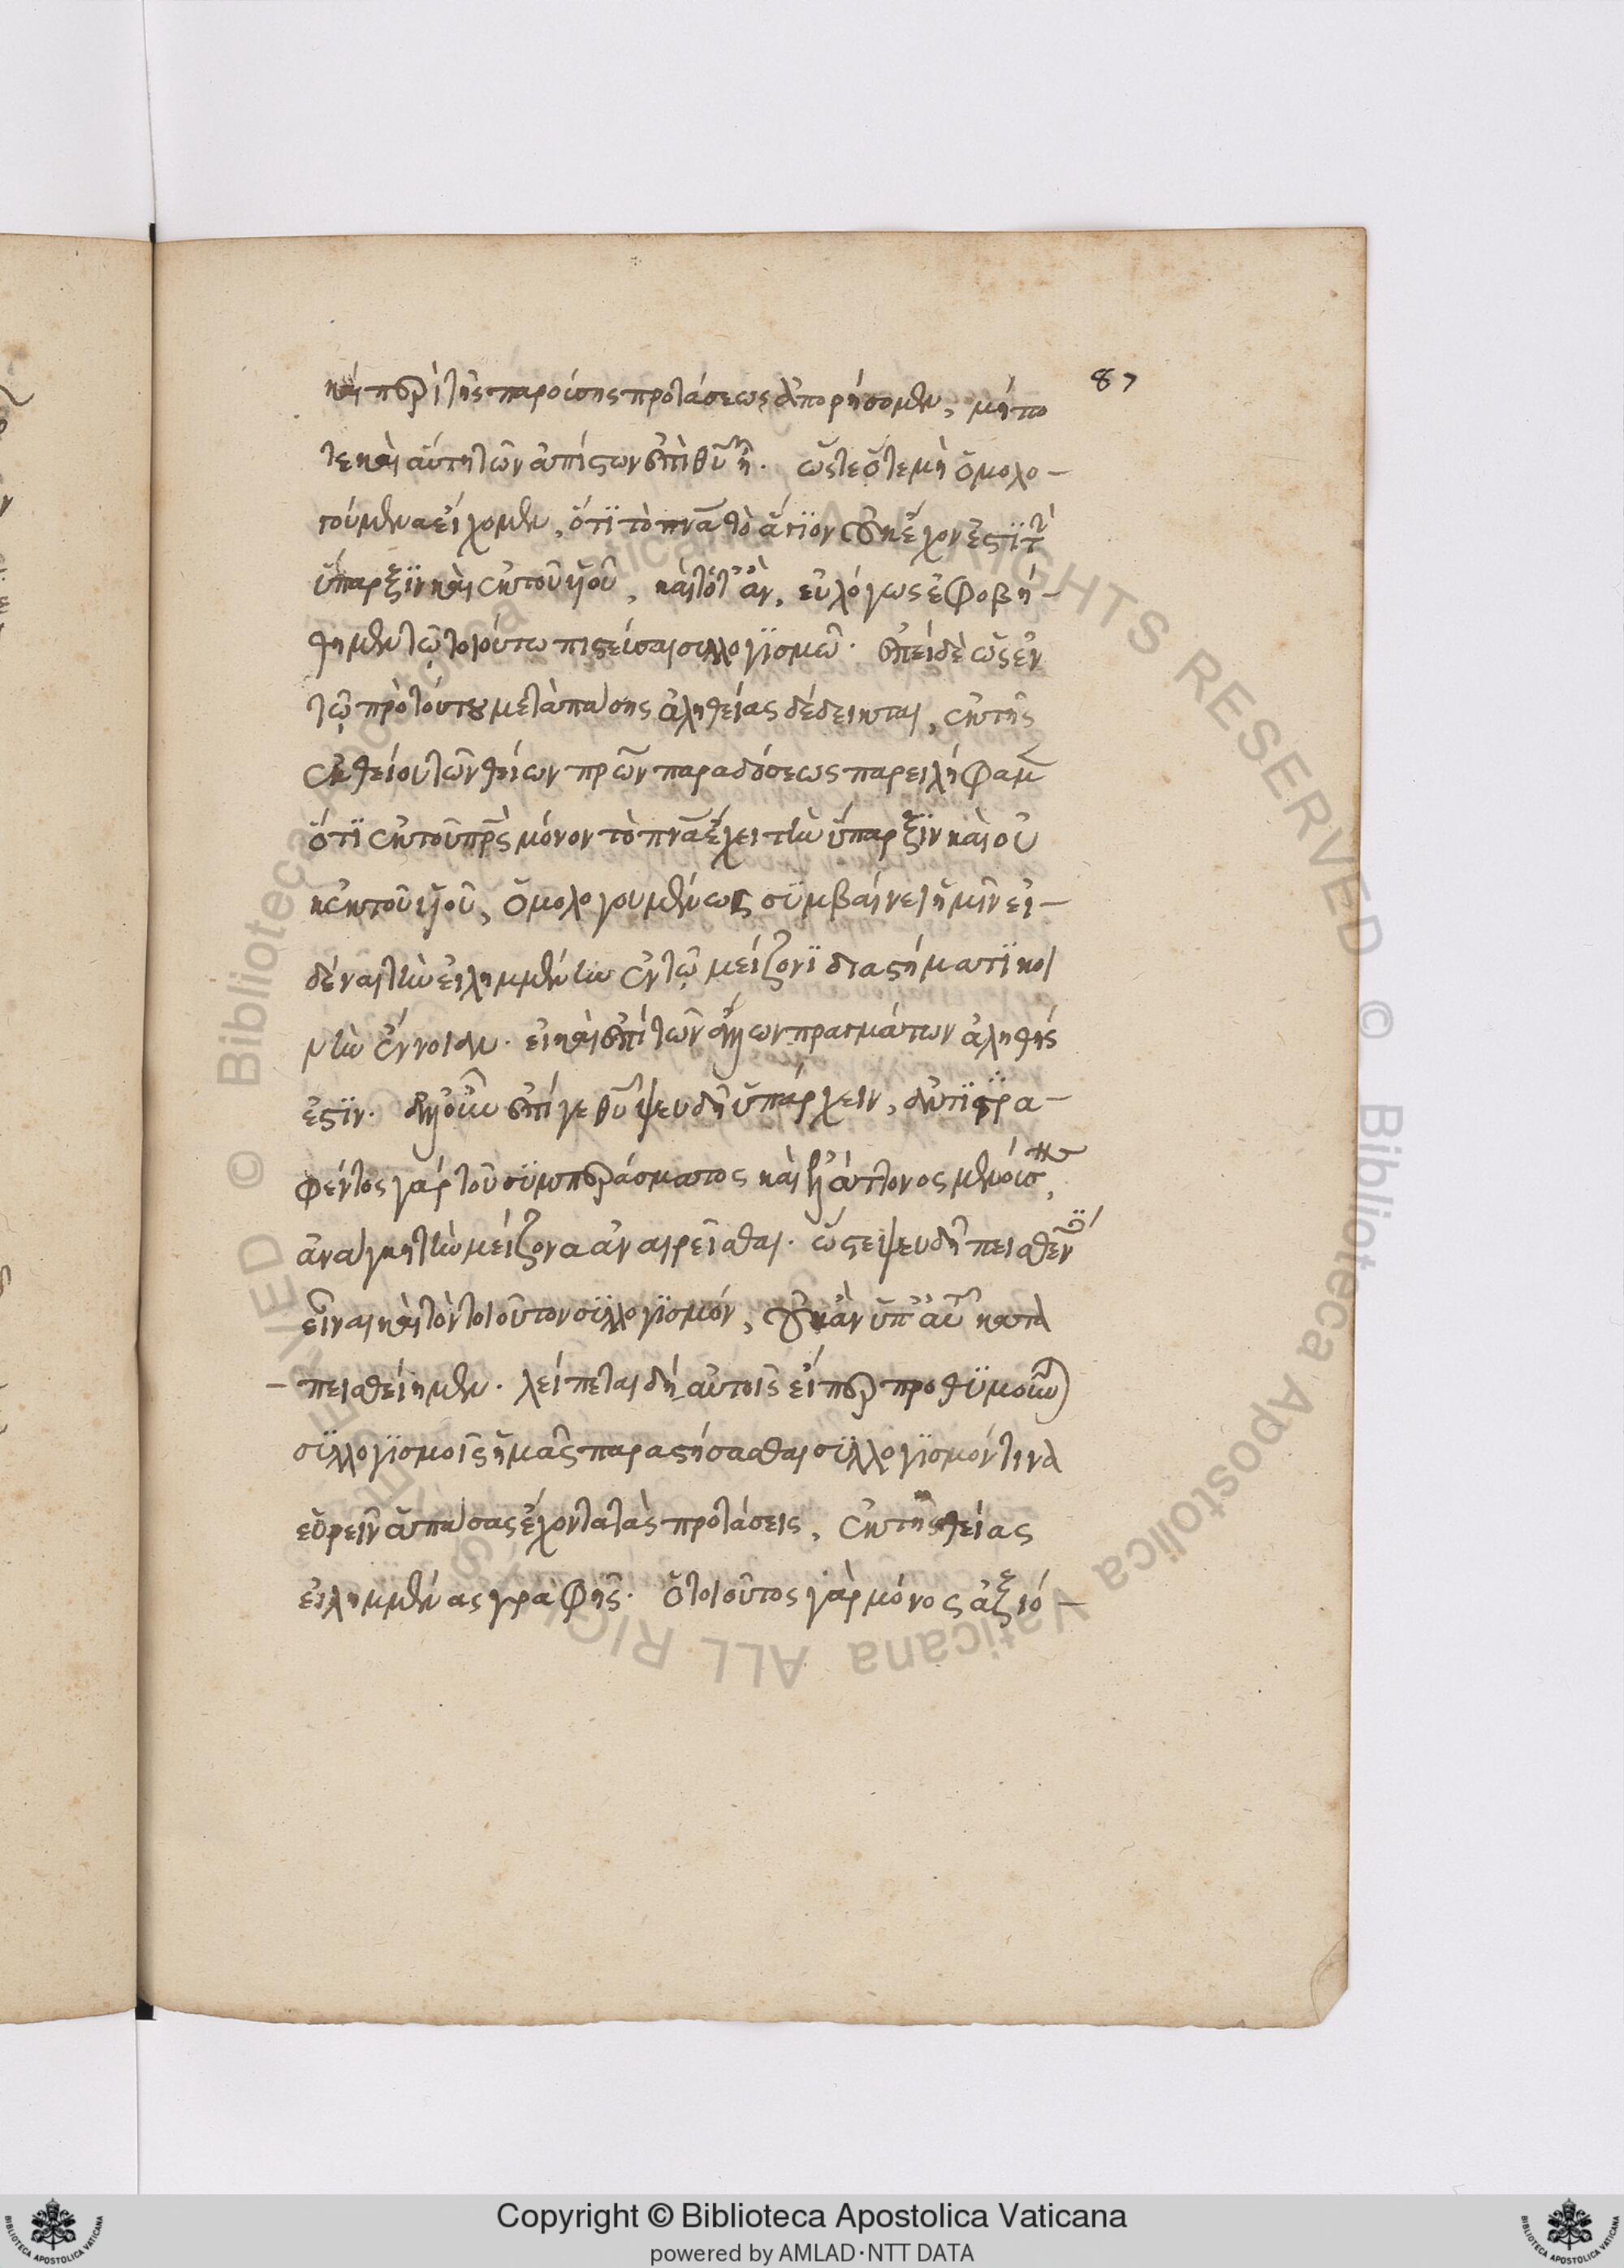 87
καὶ περὶ τῆς παρούσης προτάσεως ἀπορήσομεν, μήπο
τε καὶ αὕτη τῶν ἀπίστων ἐπὶ θῦ ἦ. ὥστε ὅτε μὴ ὁμολο-
γούμενα εἴχομεν, ὅτι τὸ πνᾶ τὸ ἅγιον οὐκ ἔχον ἐστὶ τὴν
ὕπαρξιν καὶ ἐκ τοῦ υἱοῦ, καὶ τότ' ἂν, εὐλόγως ἐφοβή-
θημεν τῷ τοιούτω πιστεύσαι συλλογισμῶ. ἐπεὶ δὲ ὡς ἐν
τῷ πρὸ τούτου μετὰ πάσης ἀληθείας δέδεικται, ἐκ τῆς
ἐκθείου τῶν θείων πρῶν παραδόσεως παρειλήφαμ
ὅτι ἐκ τοῦ πρς μόνον τὸ πνᾶ ἔχει τὴν ὕπαρξιν καὶ οὐ
κ ἐκ τοῦ υἱοῦ, ὁμολογουμένως συμβαίνει ἡμῖν εἰ-
δέναι τὴν εἰλημμένην ἐν τῷ μείζονι διαστήματι κοι
νὴν ἔννοιαν. εἰ καὶ ἐπὶ τῶν ἄλλων πραγμάτων ἀληθής
ἐστιν. ἀλλ' οὖν ἐπί γε θῦ ψευδῆ ὑπάρχειν, ἀντιστρα-
φέντος γὰρ τοῦ συμπεράσματος καὶ τῆς ἐλάττονος μενούσης,
ἀνάγκη τὴν μείζονα ἀναιρεῖσθαι. ὥστε ψευδῆ πεισθέντες
εἶναι καὶ τὸν τοιοῦτον συλλογισμόν, οὐκ ἂν ὑπ' αὐτοῦ κατα
- πεισθείημεν. λείπεται δὴ αὐτοῖς εἴπερ προθυμοῦνται
συλλογισμοῖς ἡμᾶς παραστήσασθαι συλλογισμόν τινα
εὑρεῖν ἁπάσας ἔχοντα τὰς προτάσεις, ἐκ τῆς θείας
εἰλημμένας γραφῆς. ὁ τοιοῦτος γὰρ μόνος ἀξιό-
Copyright © Biblioteca Apostolica Vaticana
powered by AMLAD·NTT DATA